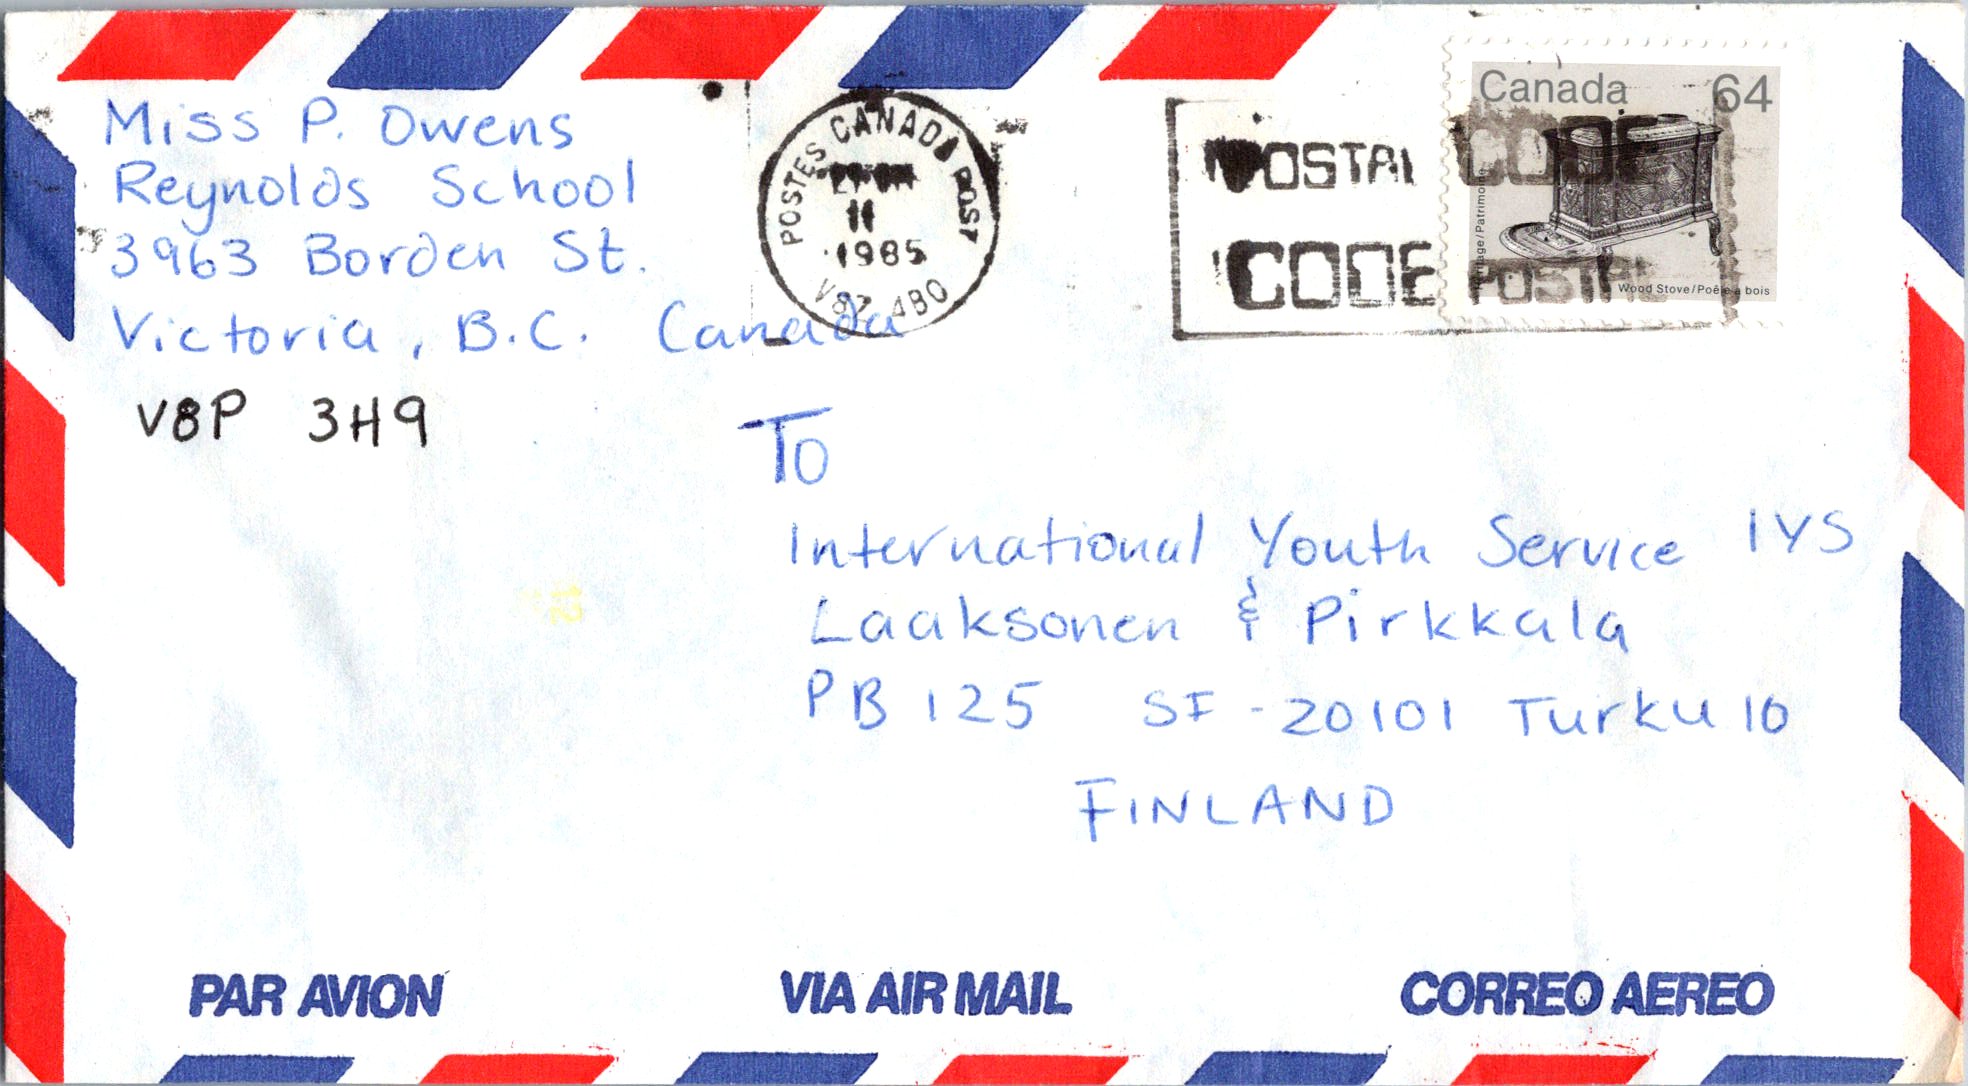 Miss P. Owens
Reynolds School
3963 Borden St.
Victoria, B.C. Canada
V8P 3H9
POSTES CANADA POST
11
1985
V8Z 4B0
POSTAL CODE
CODE POSTAL
Canada 64
Heritage/Patrimoine
Wood Stove/Poêle à bois
To
International Youth Service IYS
Laaksonen & Pirkkala
PB 125 SF-20101 Turku 10
FINLAND
PAR AVION VIA AIR MAIL CORREO AEREO